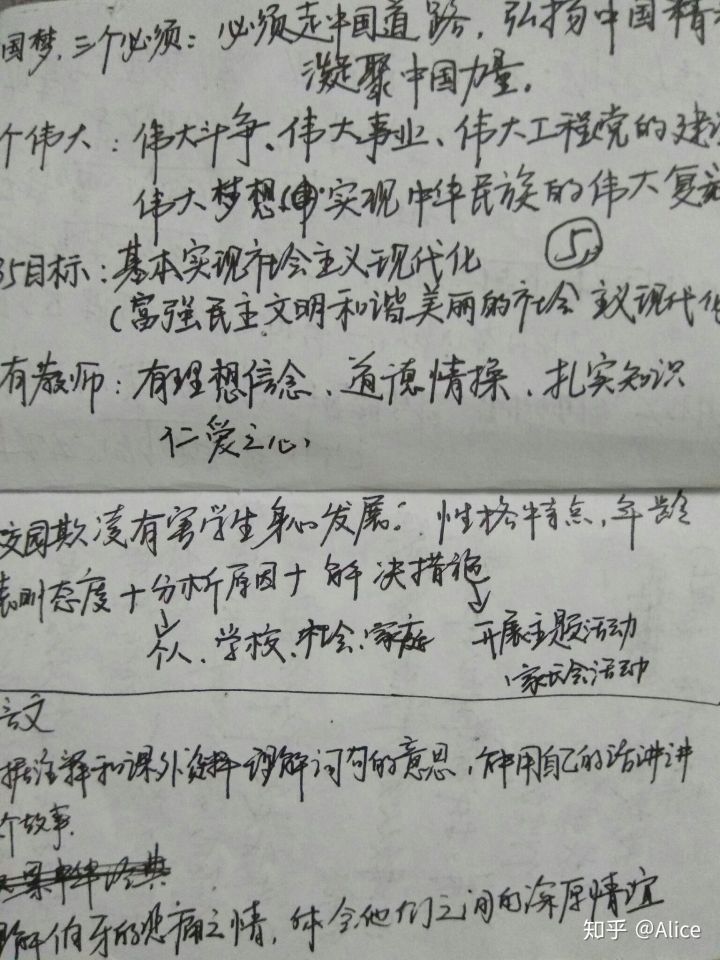 国梦，三个必须：必须走中国道路，弘扬中国精
凝聚中国力量。
个伟大：伟大斗争、伟大事业、伟大工程党的建设
伟大梦想 实现中华民族的伟大复兴
35目标：基本实现社会主义现代化 5
（富强民主文明和谐美丽的社会主义现代化
有教师：有理想信念、道德情操、扎实知识
仁爱之心、
校园欺凌有害学生身心发展：性格特点，年龄
表明态度＋分析原因＋解决措施
个人、学校、社会、家庭 开展主题活动
家长会活动
言文
据注释和课外资料理解词句的意思，能用自己的话讲讲
个故事.
理解伯牙的悲痛之情，体会他们之间的深厚情谊
知乎 @Alice